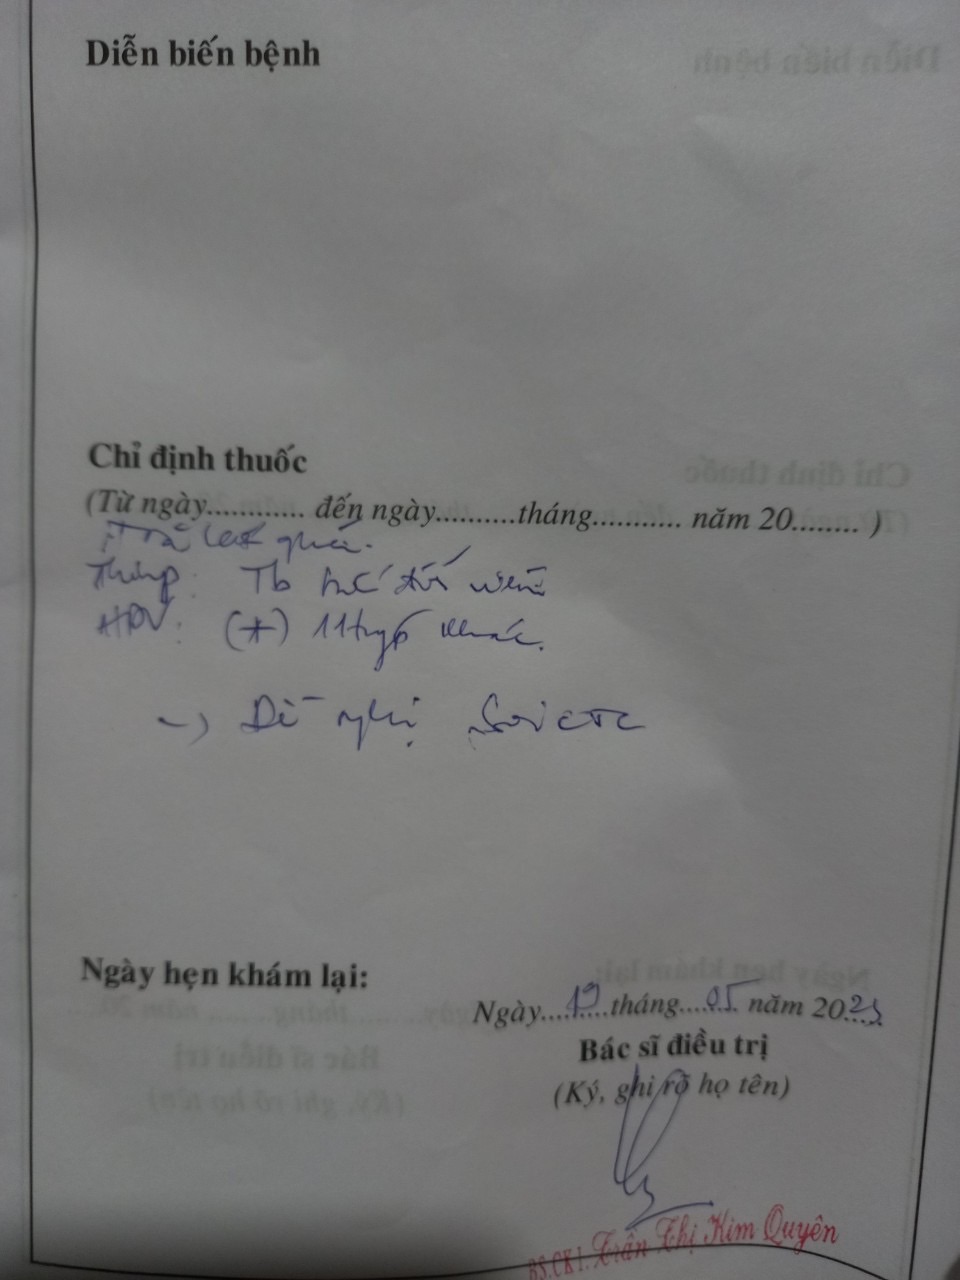 Diễn biến bệnh
Chỉ định thuốc
(Từ ngày............ đến ngày..........tháng........... năm 20........ )
Trả kết quả.
Thinp: Tb
HPV: (+) 11 typ khác.
→ Đề nghị Soi CTC
Ngày hẹn khám lại:
Ngày....19....tháng....05 năm 2023
Bác sĩ điều trị
(Ký, ghi rõ họ tên)
BS.CK1. Trần Thị Kim Quyên